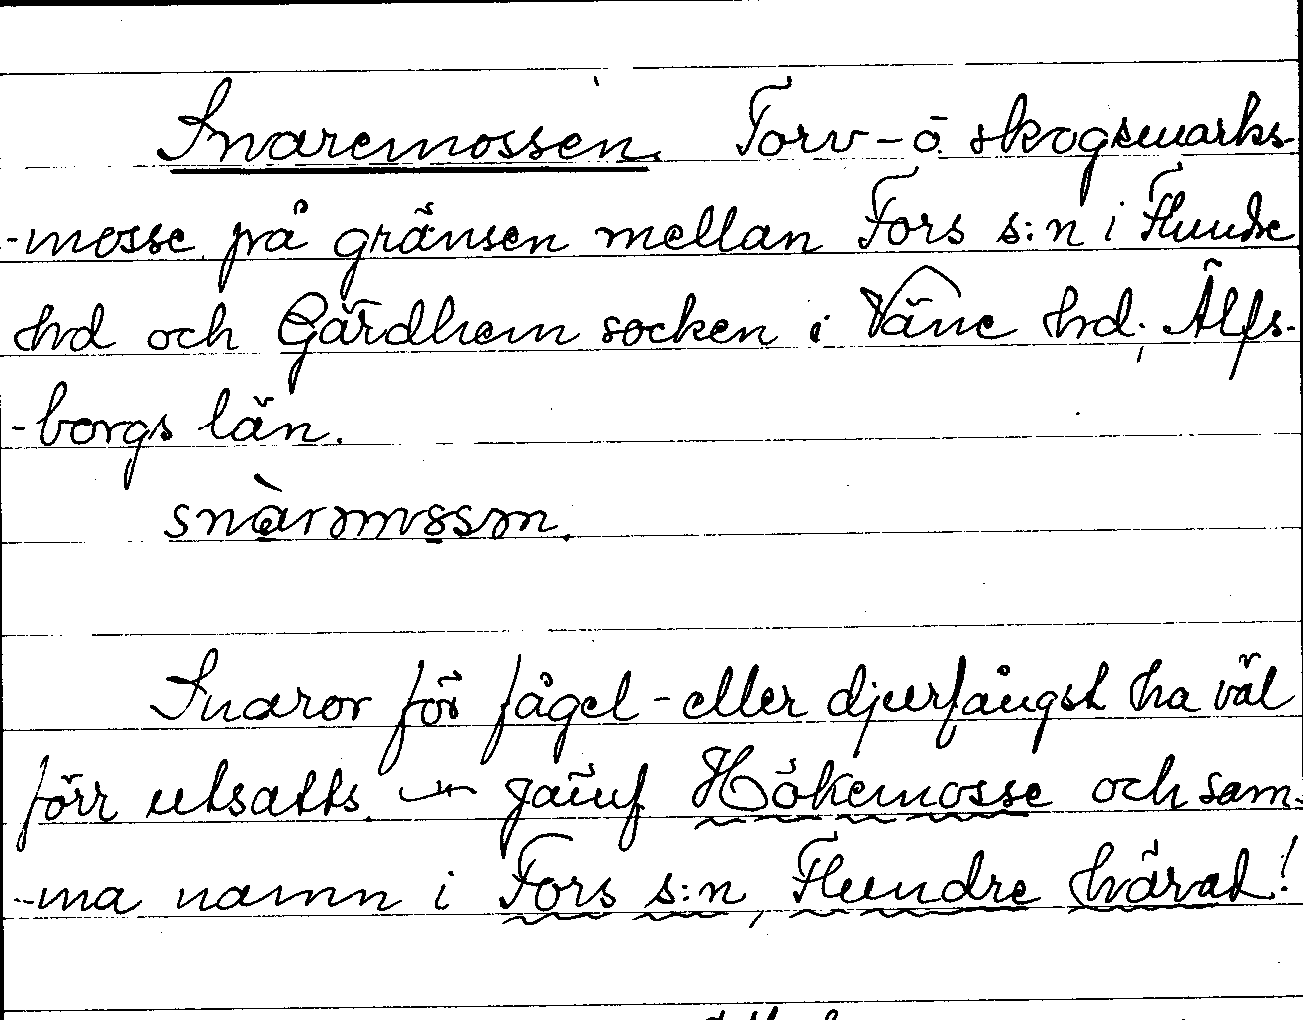 Snaremossen. Torv- o. skogsmarks-
-mosse på gränsen mellan Fors s:n i Flundre
hd och Gärdhem socken i Väne hd, Älfs-
-borgs län.
snàrəmɷsən.
Snaror för fågel- eller djurfångst ha väl
förr utsatts. — jämf Hökemosse och sam-
-ma namn i Fors s:n, Flundre härad!